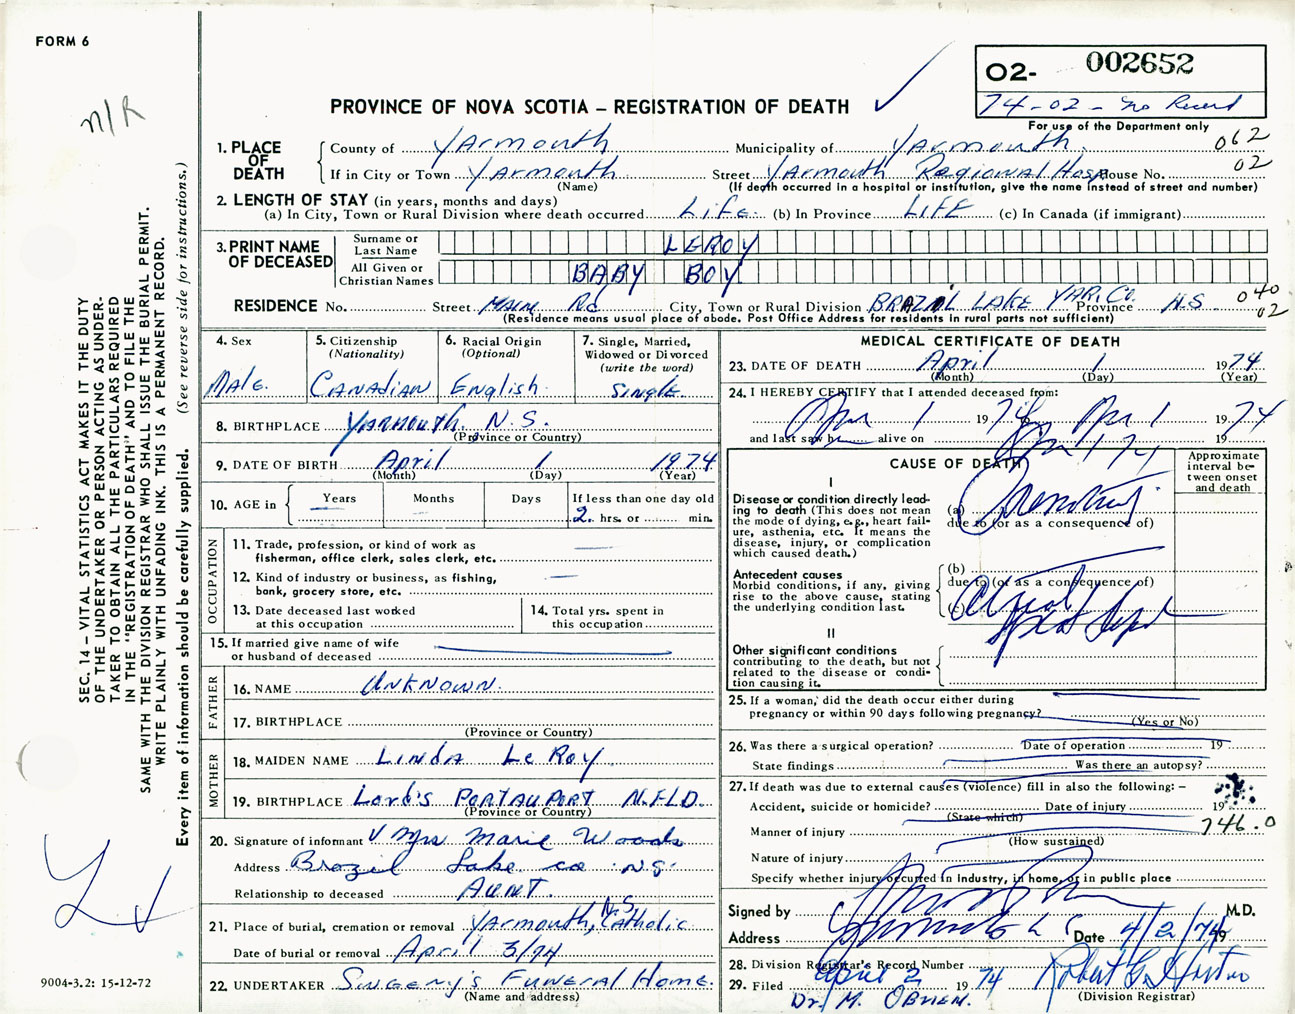 FORM 6
n/R
O2- 002652
74-02 - No Record
For use of the Department only
PROVINCE OF NOVA SCOTIA – REGISTRATION OF DEATH
1. PLACE OF DEATH
County of Yarmouth Municipality of Yarmouth 062
If in City or Town Yarmouth Street Yarmouth Regional Hosp House No. 02
(Name) (If death occurred in a hospital or institution, give the name instead of street and number)
2. LENGTH OF STAY (in years, months and days)
(a) In City, Town or Rural Division where death occurred Life (b) In Province LIFE (c) In Canada (if immigrant)
3. PRINT NAME OF DECEASED
Surname or Last Name LEROY
All Given or Christian Names BABY BOY
RESIDENCE No. Street MAIN Rd City, Town or Rural Division BRAZIL LAKE YAR. Co. Province N.S 040 02
(Residence means usual place of abode. Post Office Address for residents in rural parts not sufficient)
4. Sex
Male.
5. Citizenship
(Nationality)
Canadian
6. Racial Origin
(Optional)
English.
7. Single, Married, Widowed or Divorced
(write the word)
Single.
8. BIRTHPLACE Yarmouth. N.S.
(Province or Country)
9. DATE OF BIRTH April 1 1974
(Month) (Day) (Year)
10. AGE in Years Months Days If less than one day old
2. hrs. or min.
OCCUPATION
11. Trade, profession, or kind of work as fisherman, office clerk, sales clerk, etc.
12. Kind of industry or business, as fishing, bank, grocery store, etc.
13. Date deceased last worked at this occupation
14. Total yrs. spent in this occupation
15. If married give name of wife or husband of deceased
FATHER
16. NAME Unknown.
17. BIRTHPLACE
(Province or Country)
MOTHER
18. MAIDEN NAME Linda Le Roy
19. BIRTHPLACE Lord's PORTAUPORT N.F.L.D.
(Province or Country)
20. Signature of informant Mrs Marie Woods
Address Brazil Lake co N.S.
Relationship to deceased AUNT.
21. Place of burial, cremation or removal Yarmouth, N.S. Catholic
Date of burial or removal April 3/74
22. UNDERTAKER Sweeny's Funeral Home.
(Name and address)
MEDICAL CERTIFICATE OF DEATH
23. DATE OF DEATH April 1 1974
(Month) (Day) (Year)
24. I HEREBY CERTIFY that I attended deceased from:
Apr 1 1974 Apr 1 1974
and last saw h alive on Apr 1 74 19
CAUSE OF DEATH
Approximate interval between onset and death
I
Disease or condition directly leading to death (This does not mean the mode of dying, e.g., heart failure, asthenia, etc. It means the disease, injury, or complication which caused death.)
(a) Prematurity
due to (or as a consequence of)
Antecedent causes
Morbid conditions, if any, giving rise to the above cause, stating the underlying condition last.
(b)
due to (or as a consequence of)
(c)
II
Other significant conditions
contributing to the death, but not related to the disease or condition causing it.
25. If a woman, did the death occur either during pregnancy or within 90 days following pregnancy?
(Yes or No)
26. Was there a surgical operation? Date of operation 19
State findings Was there an autopsy?
27. If death was due to external causes (violence) fill in also the following: –
Accident, suicide or homicide? Date of injury 19
(State which)
Manner of injury 746.0
(How sustained)
Nature of injury
Specify whether injury occurred in Industry, in home, or in public place
Signed by M.D.
Address Date 4/2/74 19
28. Division Registrar's Record Number
29. Filed April 2 1974 Robert G. Horton
(Division Registrar)
Dr. M. OBRIEN.
SEC. 14 – VITAL STATISTICS ACT MAKES IT THE DUTY
OF THE UNDERTAKER OR PERSON ACTING AS UNDERTAKER TO OBTAIN ALL THE PARTICULARS REQUIRED
IN THE "REGISTRATION OF DEATH" AND TO FILE THE
SAME WITH THE DIVISION REGISTRAR WHO SHALL ISSUE THE BURIAL PERMIT.
WRITE PLAINLY WITH UNFADING INK. THIS IS A PERMANENT RECORD.
Every item of information should be carefully supplied. (See reverse side for instructions.)
9004-3.2: 15-12-72